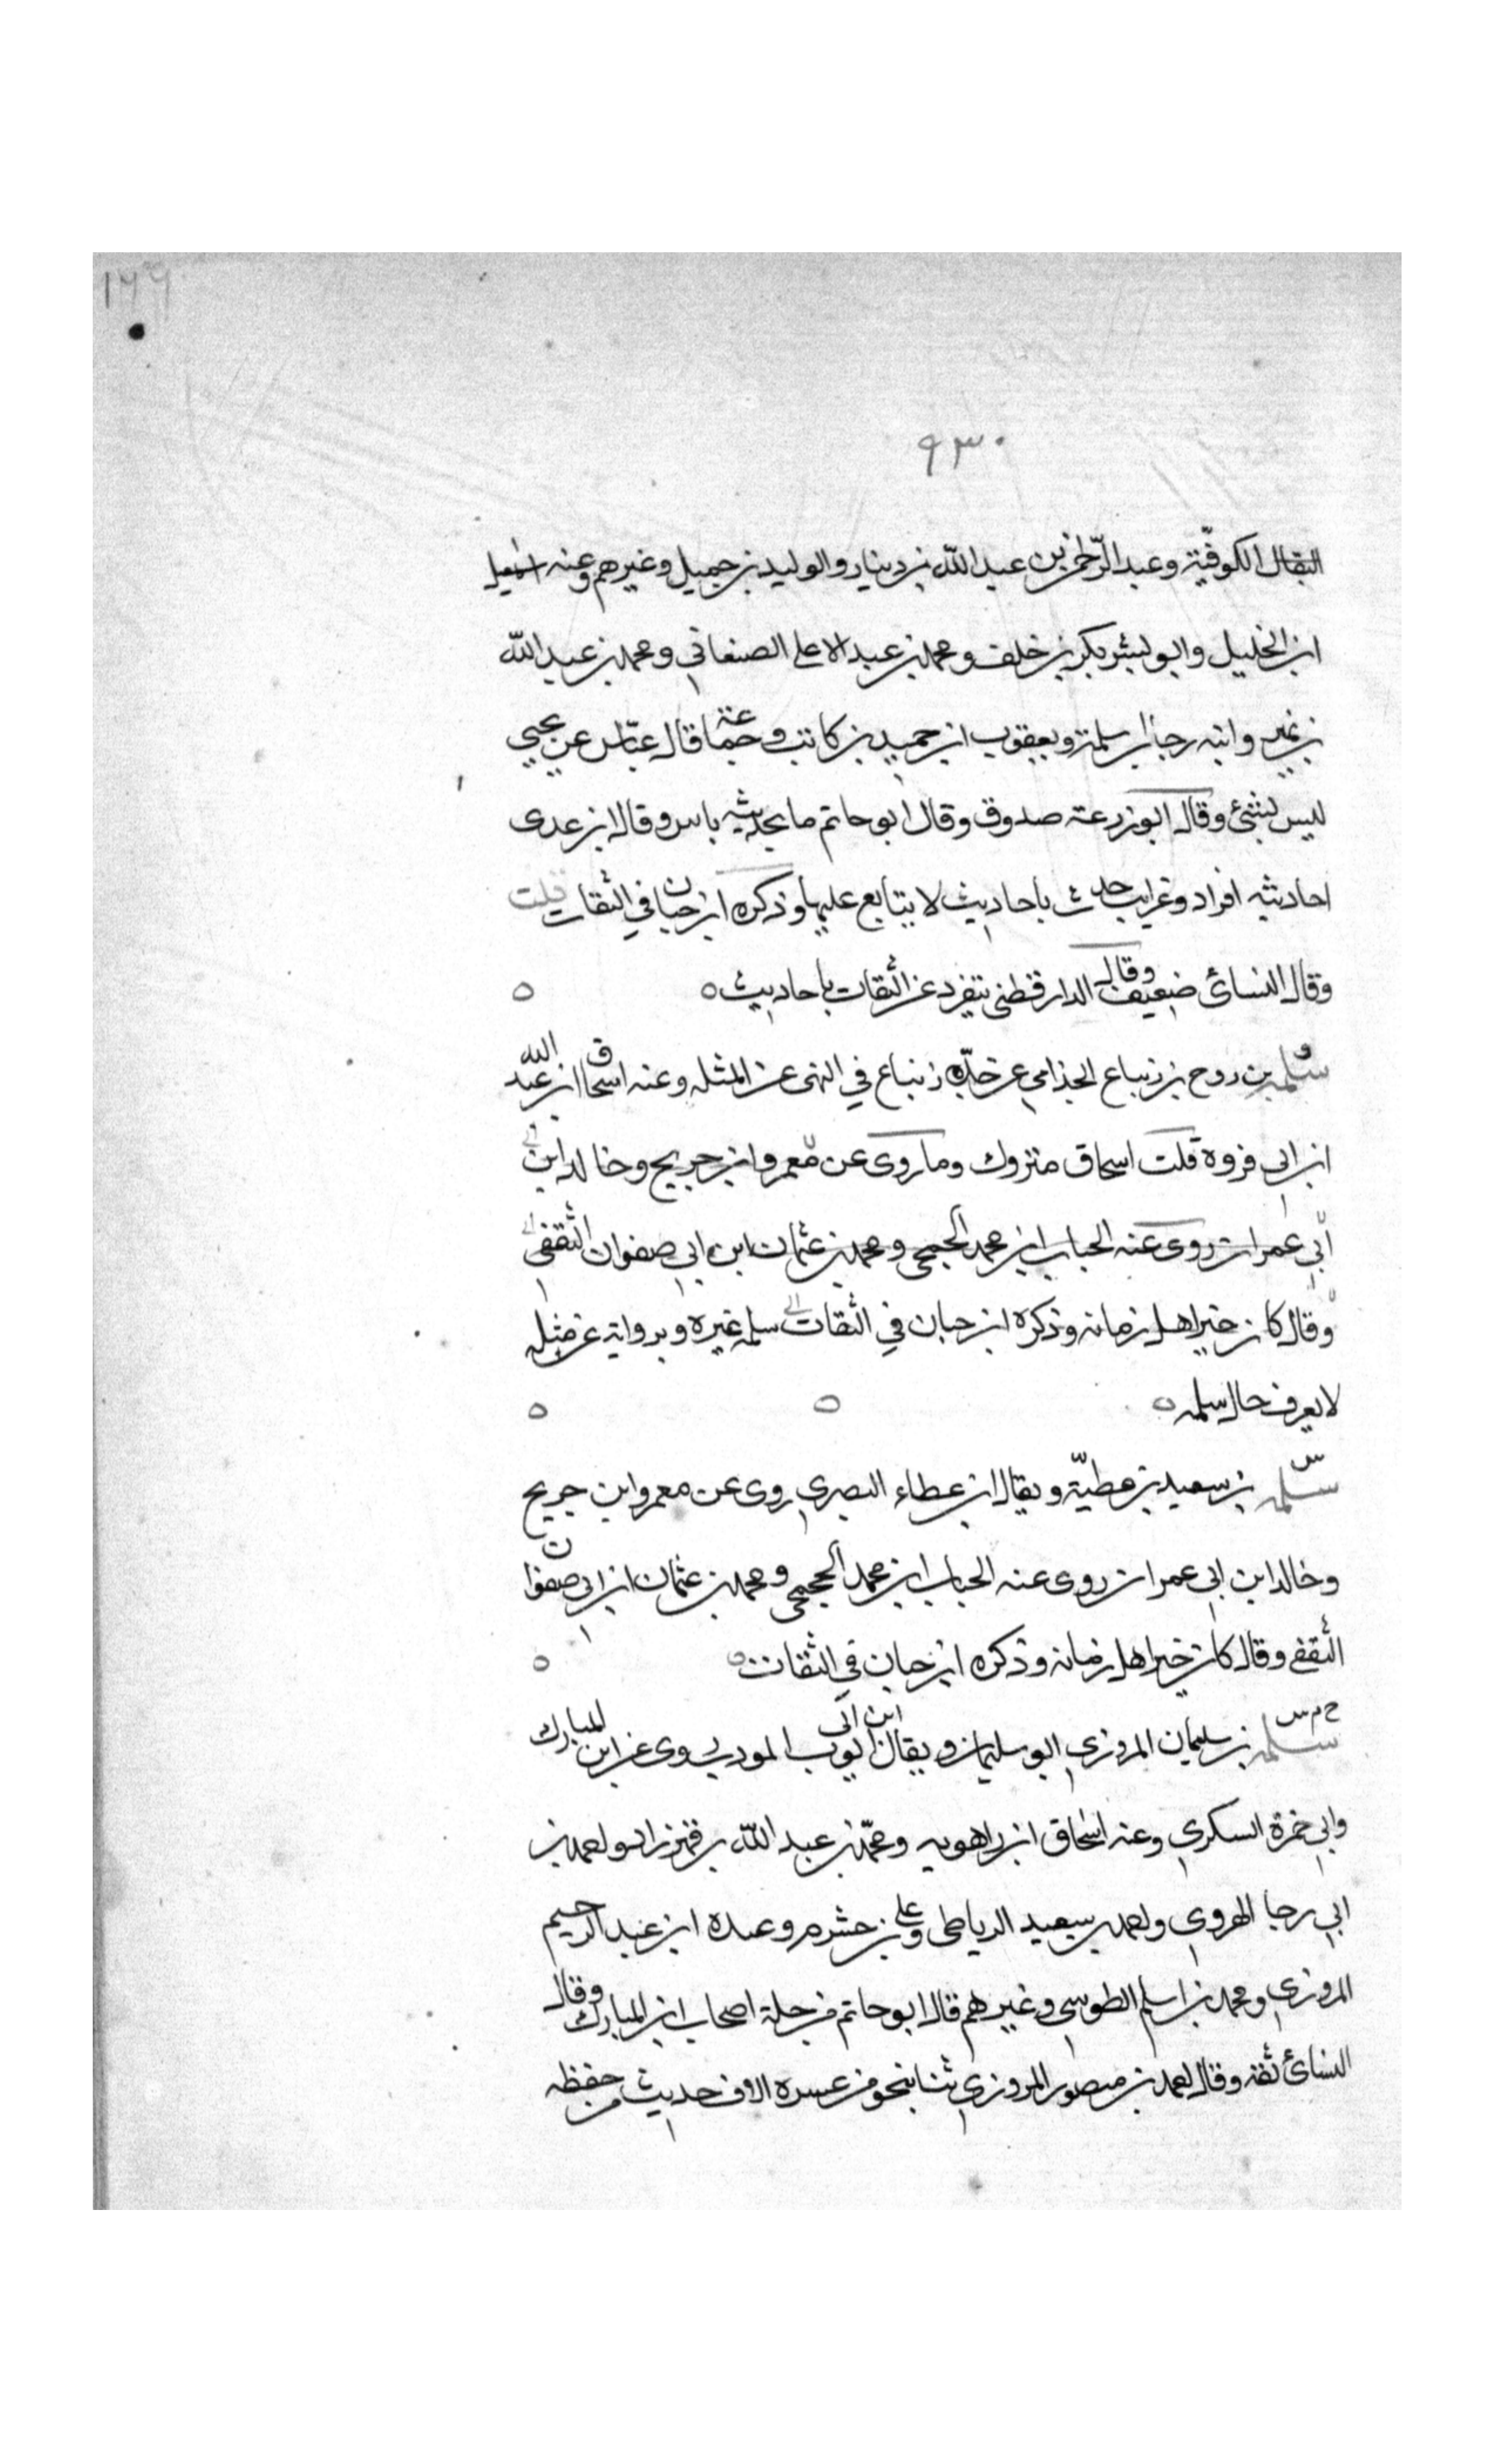 ١٢٦
٩٣٠
البقال الكوفية وعبد الرحمن بن عبد الله بن دينار والوليد بن جميل وغيرهم وعنه اسمعيل
ابن الخليل وابو بشر بكر بن خلف ومحمد بن عبد الاعلى الصنعاني ومحمد بن عبد الله
بن نمير وابنه رجا بن سلمة ويعقوب ابن حميد بن كاسب وجماعة قال عباس عن يحيي
ليس بشئ وقال ابو زرعة صدوق وقال ابو حاتم ما بحديثه باس وقال ابن عدى
احاديثه افراد وغرايب حدث باحاديث لا يتابع عليها وذكره ابن حبان في الثقات قلت
وقال النسائ ضعيف وقال الدارقطنى يتفرد عن الثقات باحاديث
ق
سلمه بن روح بن زنباع الجذامي عن جده زنباع في النهى عن المثله وعنه اسحاق ابن عبد الله
ابن ابي فروة قلت اسحاق متروك وما روى عن معمر وابن جريج وخالد ابن
ابي عمران روى عنه الحباب ابن محمد الجمحى ومحمد بن عثمان ابن ابي صفوان الثقفى
وقال كان خير اهل زمانه وذكره ابن حبان في الثقات سلمه غيره وبرواية عن مثله
لا يعرف حال سلمه
س
سلمه بن سعيد بن عطية ويقال ابن عطاء البصري روى عن معمر وابن جريج
وخالد ابن ابي عمران روى عنه الحباب ابن محمد الجمحى ومحمد بن عثمان ابن ابي صفوان
الثقفى وقال كان خير اهل زمانه وذكره ابن حبان في الثقات
خ م س
سلمه بن سليمان المروزي ابو سليمان ويقال ابو ايوب المودب روى عن ابن المبارك
وابي حمزة السكري وعنه اسحاق ابن راهويه ومحمد بن عبد الله بن قهزاد واحمد بن
ابي رجا الهروي واحمد بن سعيد الرباطى وعلى بن خشرم وعبده ابن عبد الرحيم
المروزي ومحمد بن اسلم الطوسى وغيرهم قال ابو حاتم من جلة اصحاب ابن المبارك وقال
النسائ ثقة وقال احمد بن منصور المروزي ثنا بنحو من عشره الاف حديث من حفظه